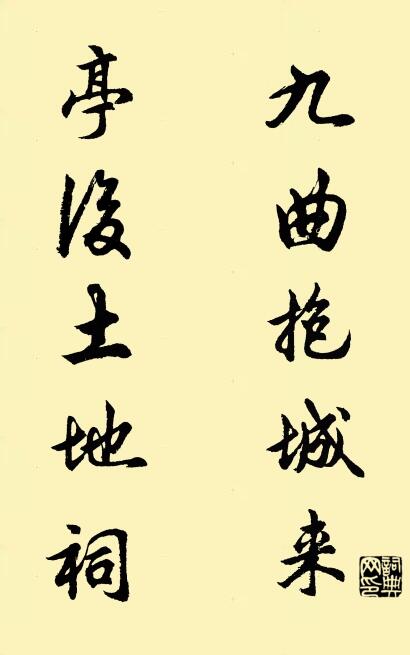 九曲抱城来
亭後土地祠
詞典网印